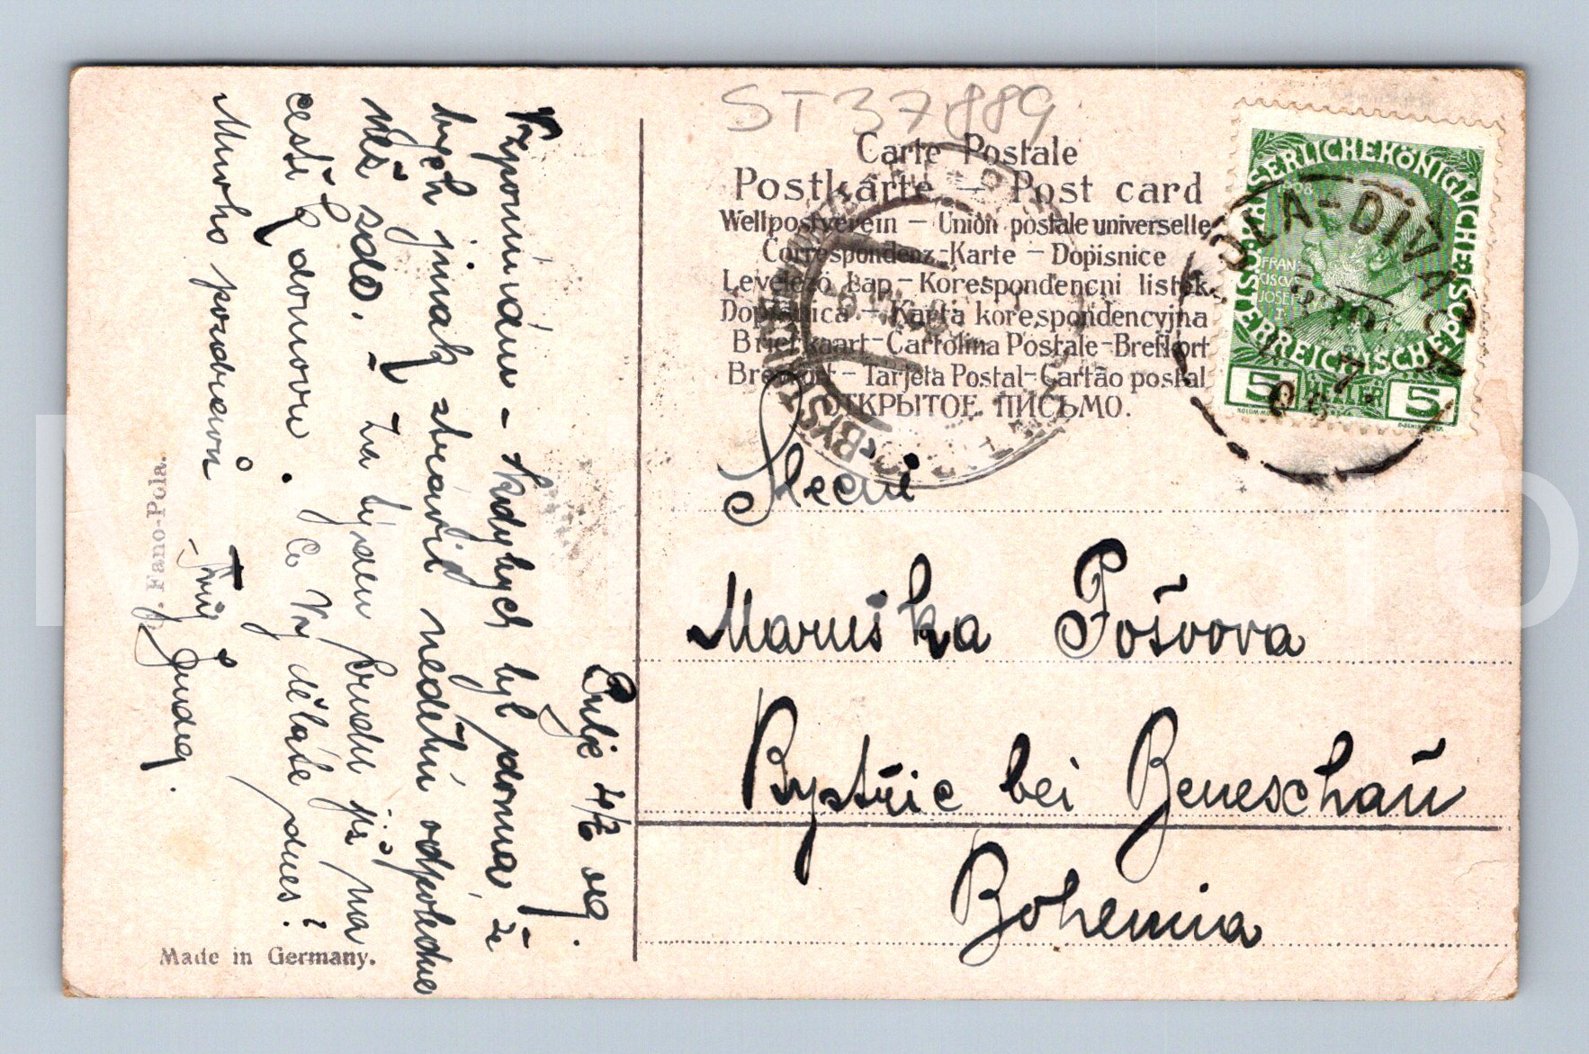 ST 37889
Carte Postale
Postkarte — Post card
Weltpostverein — Union postale universelle
Correspondenz-Karte — Dopisnice
Levelező Lap — Korespondencni listek
Dopisnica — Karta korespondencyjna
Briefkaart — Cartolina Postale — Brefkort
Brevkort — Tarjeta Postal — Cartão postal
ОТКРЫТОЕ ПИСЬМО.
KAISERLICHE KÖNIGLICHE
ÖSTERREICHISCHE POST
1908
FRANCISCVS
JOSEPH I
5 HELLER 5
POLA-DIVAČA
7
BYST
Slečni
Maruška Pošvova
Bystřic bei Beneschau
Bohemia
Pulje 4/7 09.
Vzpomínám - Kdybych byl doma, že
bych jinak strávil neděli odpoledne
než zde. - Za týden budu již na
cestě k domovu. Co Vy děláte dnes?
Mnoho pozdravů
Tvůj
G. Fano-Pola.
Made in Germany.